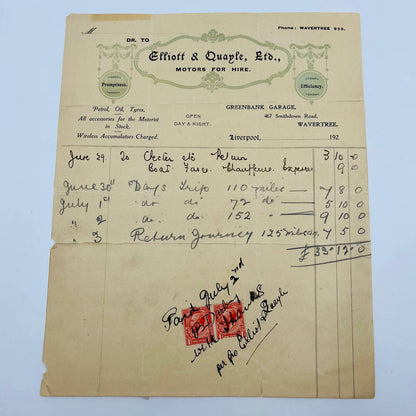 M
Phone: WAVERTREE 953.
DR. TO
Elliott & Quayle, Ltd.,
MOTORS FOR HIRE.
Promptness.
Efficiency.
Petrol, Oil, Tyres,
All accessories for the Motorist
in Stock.
Wireless Accumulators Charged.
OPEN
DAY & NIGHT.
GREENBANK GARAGE,
467 Smithdown Road,
WAVERTREE,
Liverpool, 192
June 29. To Chester etc Return 3 10 0
Boat Fares. Chauffeurs Expenses 9 0
June 30th Days Trip 110 miles — 7 8 0
July 1st do do 72 do — 5 10 0
" 2 do do 152 — 9 10 0
" 3 Return Journey 125 miles 7 5 0
£ 33-12-0
Paid July 2nd
with Thanks
per pro Elliott & Quayle